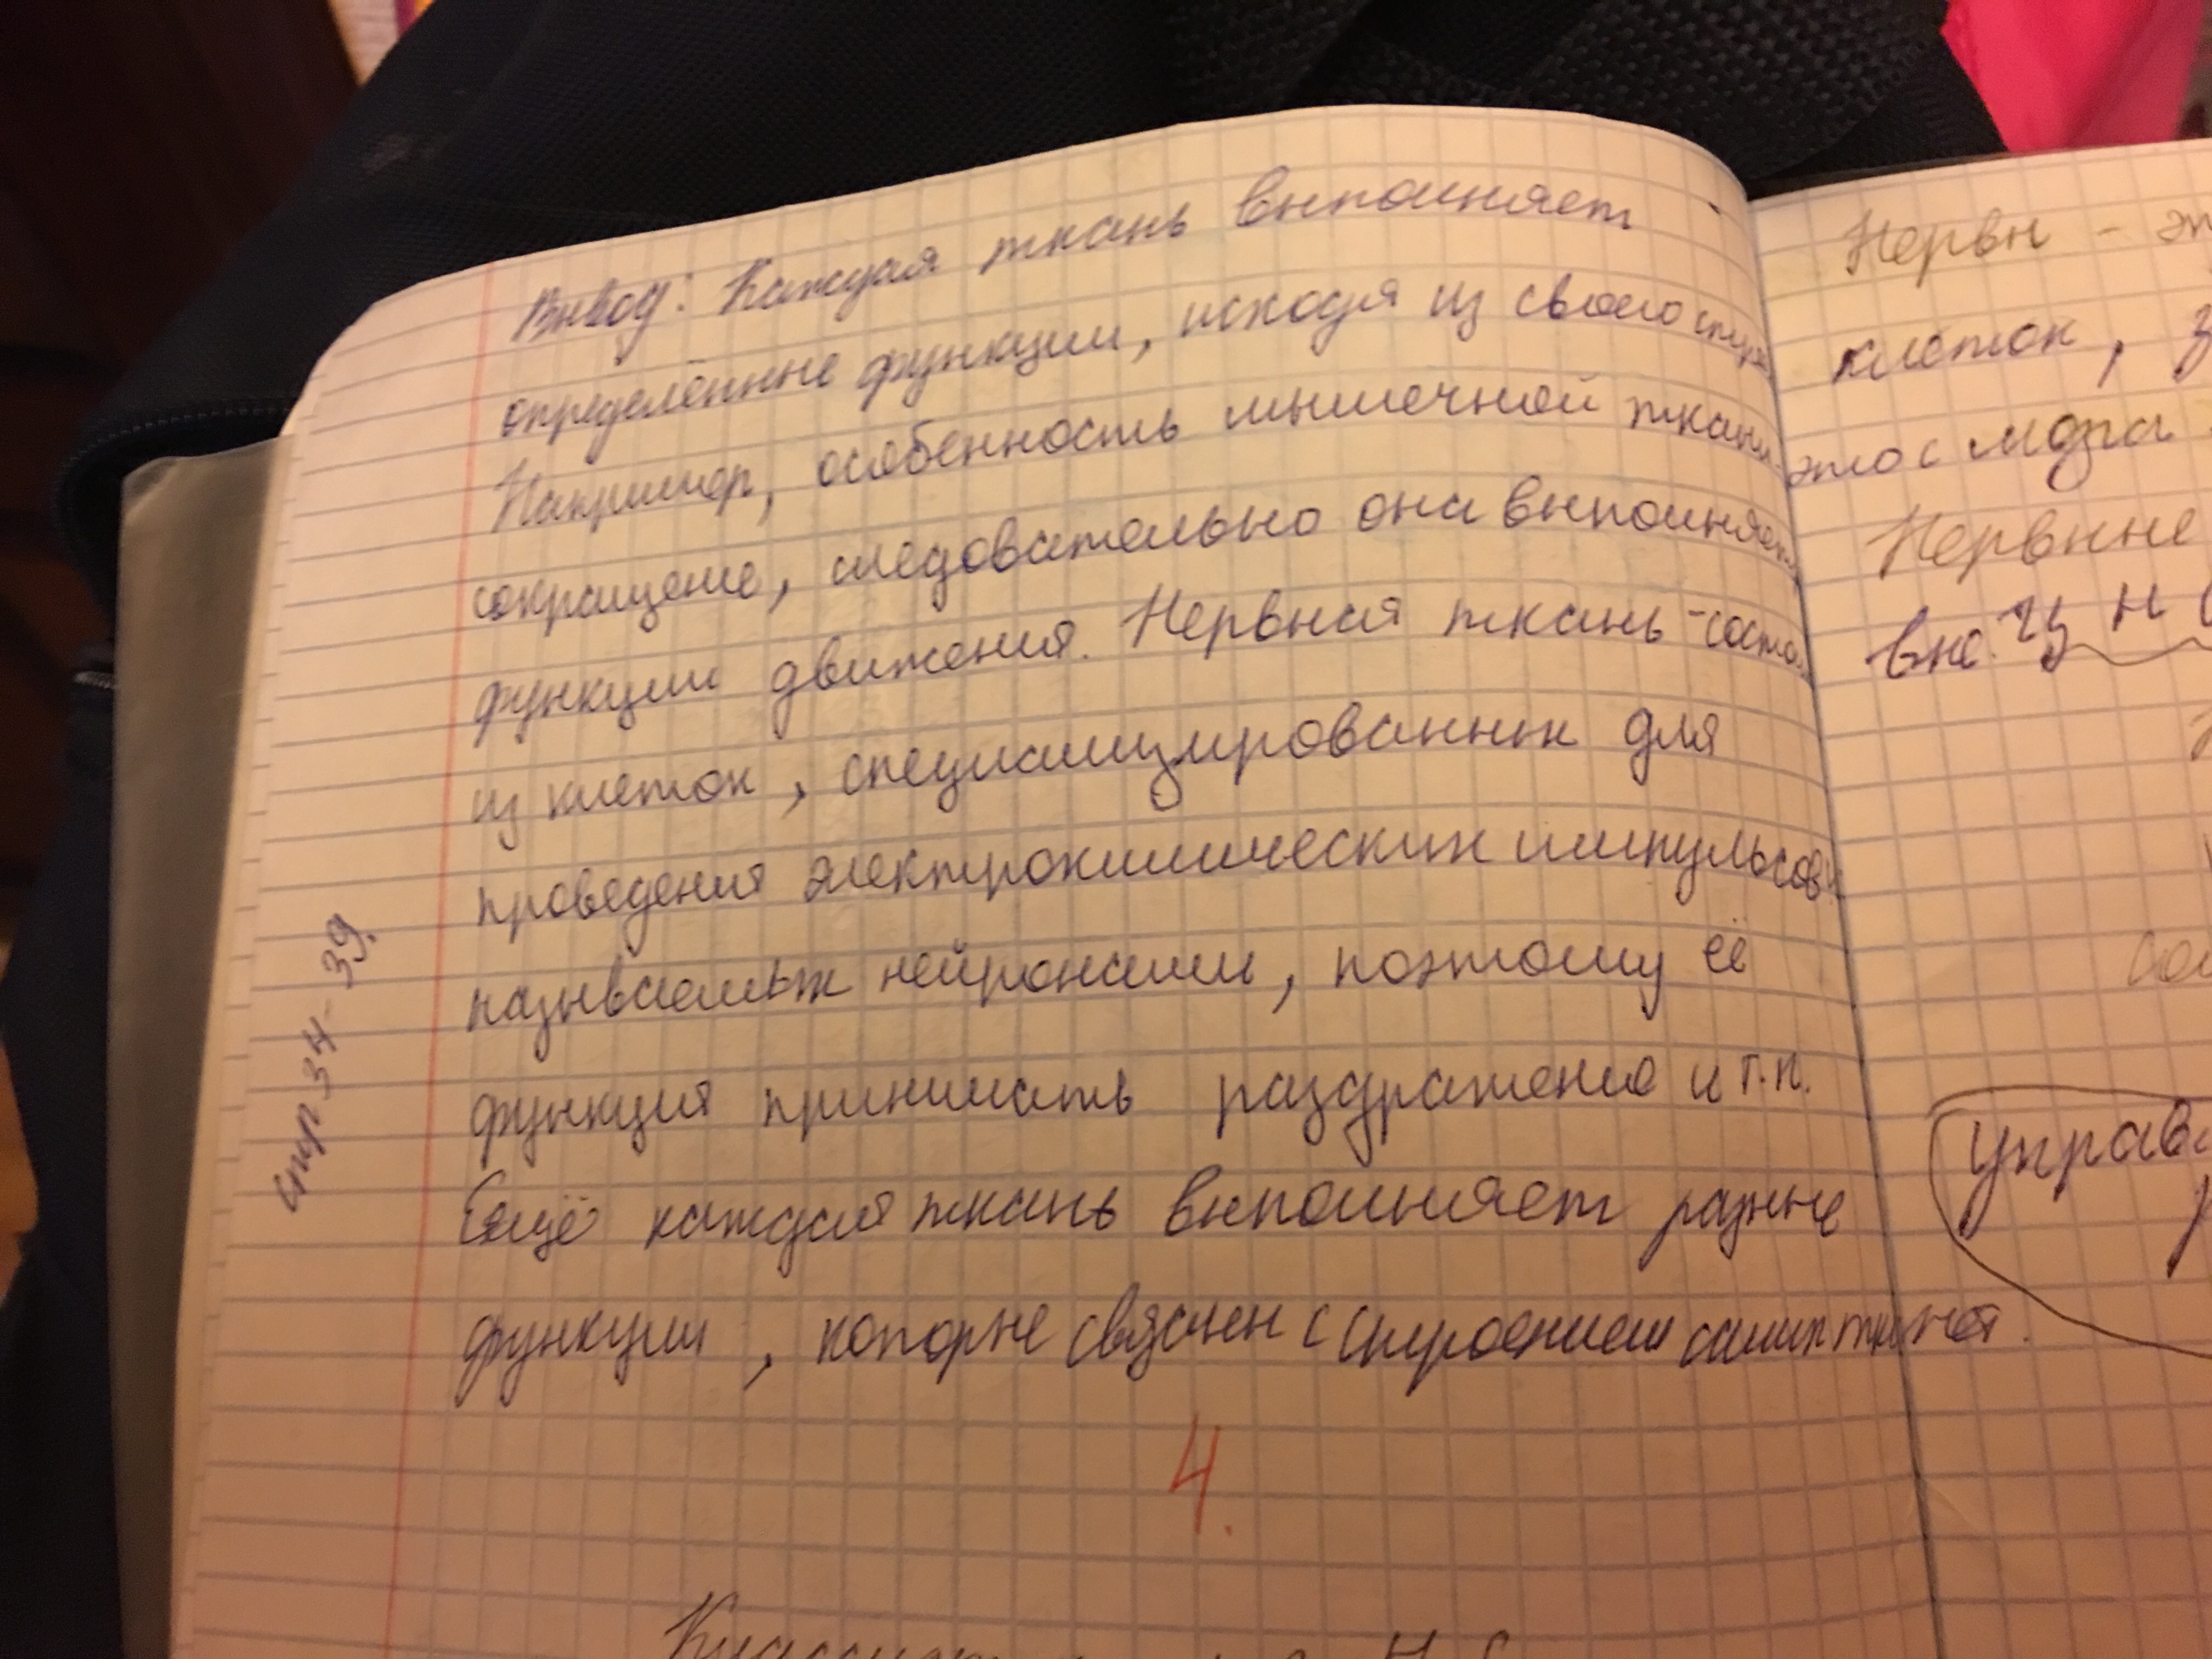 Вывод: Каждая ткань выполняет
определённые функции, исходя из своего
Например, особенность мышечной ткани -
сокращение, следовательно она выполняет
функции движения. Нервная ткань - состо
из клеток, специализированных для
проведения электрохимических импульсов и
называемых нейронами, поэтому её
функция принимать раздражение и т.п.
Ещё каждая ткань выполняет разные
функции, которые связаны с строением самих тканей.
4.
стр 34-39.
Нервы - эт
клеток, з
это с мозга
Нервные
вне. Ц Н С
управ